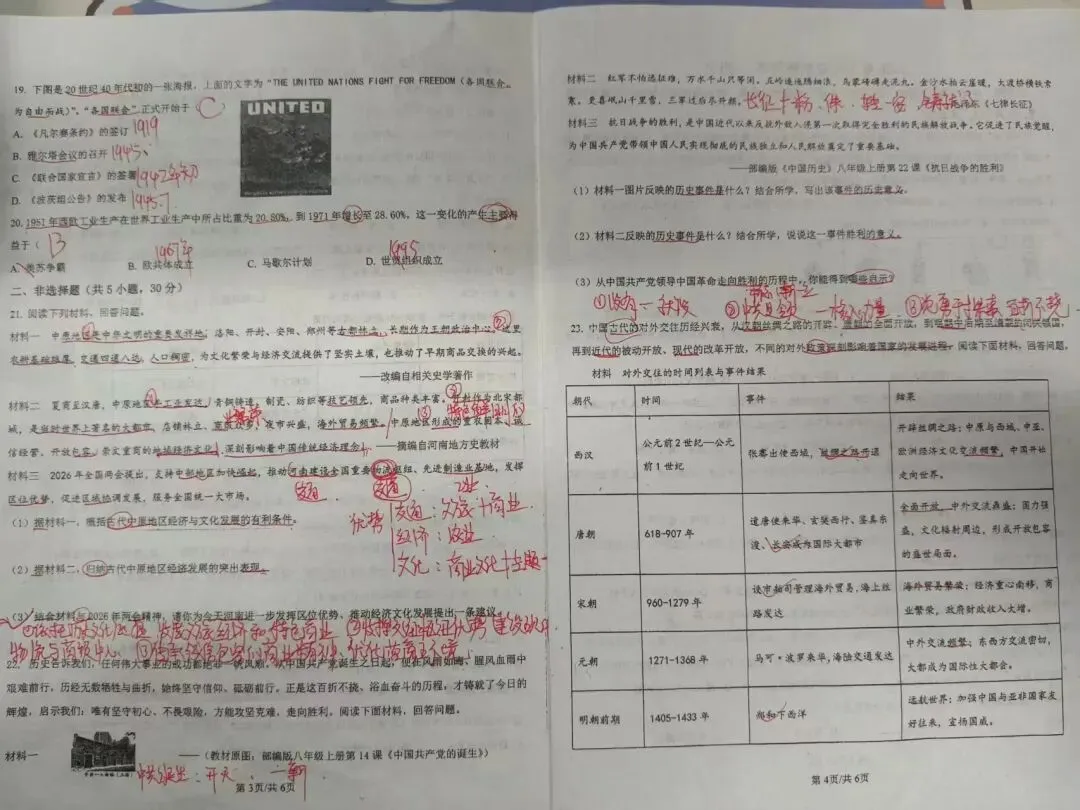 19. 下图是20世纪40年代初的一张海报，上面的文字为“THE UNITED NATIONS FIGHT FOR FREEDOM（各国联合
为自由而战）”。“各国联合”正式开始于（ C ）
UNITED
A. 《凡尔赛条约》的签订 1919
B. 雅尔塔会议的召开 1945
C. 《联合国家宣言》的签署 1942年初
D. 《波茨坦公告》的发布 1945.7
20. 1951年西欧工业生产在世界工业生产中所占比重为20.80%，到1971年增长至28.60%，这一变化的产生主要得
益于（ B
1967年
1995
A. 美苏争霸 B. 欧共体成立 C. 马歇尔计划 D. 世贸组织成立
二、非选择题（共5小题，30分）
21. 阅读下列材料，回答问题。
材料一 中原地区是中华文明的重要发祥地，洛阳、开封、安阳、郑州等古都林立，长期作为王朝政治中心。这里
农耕基础雄厚，交通四通八达，人口稠密，为文化繁荣与经济交流提供了坚实土壤，也推动了早期商品交换的兴起。
——改编自相关史学著作
材料二 夏商至汉唐，中原地区手工业发达，青铜铸造、制瓷、纺织等技艺领先，商品种类丰富。开封作为北宋都
城，是当时世界上著名的大都市，店铺林立、商贾云集，夜市兴盛，海外贸易频繁。中原地区形成的重农固本、诚
信经营、开放包容、崇文重商的地域经济文化，深刻影响着中国传统经济理念。——摘编自河南地方史教材
材料三 2026年全国两会提出，支持中部地区加快崛起，推动河南建设全国重要物流枢纽、先进制造业基地，发挥
区位优势，促进区域协调发展，服务全国统一大市场。
交通
工业
（1）据材料一，概括古代中原地区经济与文化发展的有利条件。
优势 交通：文旅+商业
经济：农业
（2）据材料二，归纳古代中原地区经济发展的突出表现。
文化：商业文化+主题
（3）结合材料与2026年两会精神，请你为今天河南进一步发挥区位优势、推动经济文化发展提出一条建议。
物流与商贸中心
22. 历史告诉我们，任何伟大事业的成功都绝非一帆风顺。从中国共产党诞生之日起，便在风雨如晦、腥风血雨中
艰难前行，历经无数牺牲与曲折，始终坚守信仰、砥砺前行。正是这百折不挠、浴血奋斗的历程，才铸就了今日的
辉煌，启示我们：唯有坚守初心、不畏艰险，方能攻坚克难、走向胜利。阅读下面材料，回答问题。
材料一 ——（教材原图：部编版八年级上册第14课《中国共产党的诞生》）
中共诞生：开天、一新
第3页/共6页
材料二 红军不怕远征难，万水千山只等闲。五岭逶迤腾细浪，乌蒙磅礴走泥丸。金沙水拍云崖暖，大渡桥横铁索
寒。更喜岷山千里雪，三军过后尽开颜。 ——毛泽东《七律长征》
材料三 抗日战争的胜利，是中国近代以来反抗外敌入侵第一次取得完全胜利的民族解放战争。它促进了民族觉醒，
为中国共产党带领中国人民实现彻底的民族独立和人民解放奠定了重要基础。
——部编版《中国历史》八年级上册第22课《抗日战争的胜利》
（1）材料一图片反映的历史事件是什么？结合所学，写出该事件的历史意义。
（2）材料二反映的历史事件是什么？结合所学，说说这一事件胜利的意义。
（3）从中国共产党领导中国革命走向胜利的历程中，你能得到哪些启示？
23. 中国古代的对外交往历经兴衰，从汉朝丝绸之路的开辟、
再到近代的被动开放、现代的改革开放，不同的对外政策深刻影响着国家的发展进程。阅读下面材料，回答问题。
材料 对外交往的时间列表与事件结果
朝代 时间 事件 结果
西汉 公元前2世纪—公元前1世纪 张骞出使西域，丝绸之路开通 开辟丝绸之路；中原与西域、中亚、欧洲经济文化交流频繁，中国开始走向世界。
唐朝 618-907年 遣唐使来华、玄奘西行、鉴真东渡、长安成为国际大都市 全面开放，中外交流鼎盛；国力强盛，文化辐射周边，形成开放包容的盛世局面。
宋朝 960-1279年 设市舶司管理海外贸易，海上丝路发达 海外贸易繁荣；经济重心南移，商业繁荣，政府财政收入大增。
元朝 1271-1368年 马可·波罗来华，海陆交通发达 中外交流频繁；东西方交流密切，大都成为国际性大都会。
明朝前期 1405-1433年 郑和下西洋 远航世界；加强中国与亚非国家友好往来，宣扬国威。
第4页/共6页